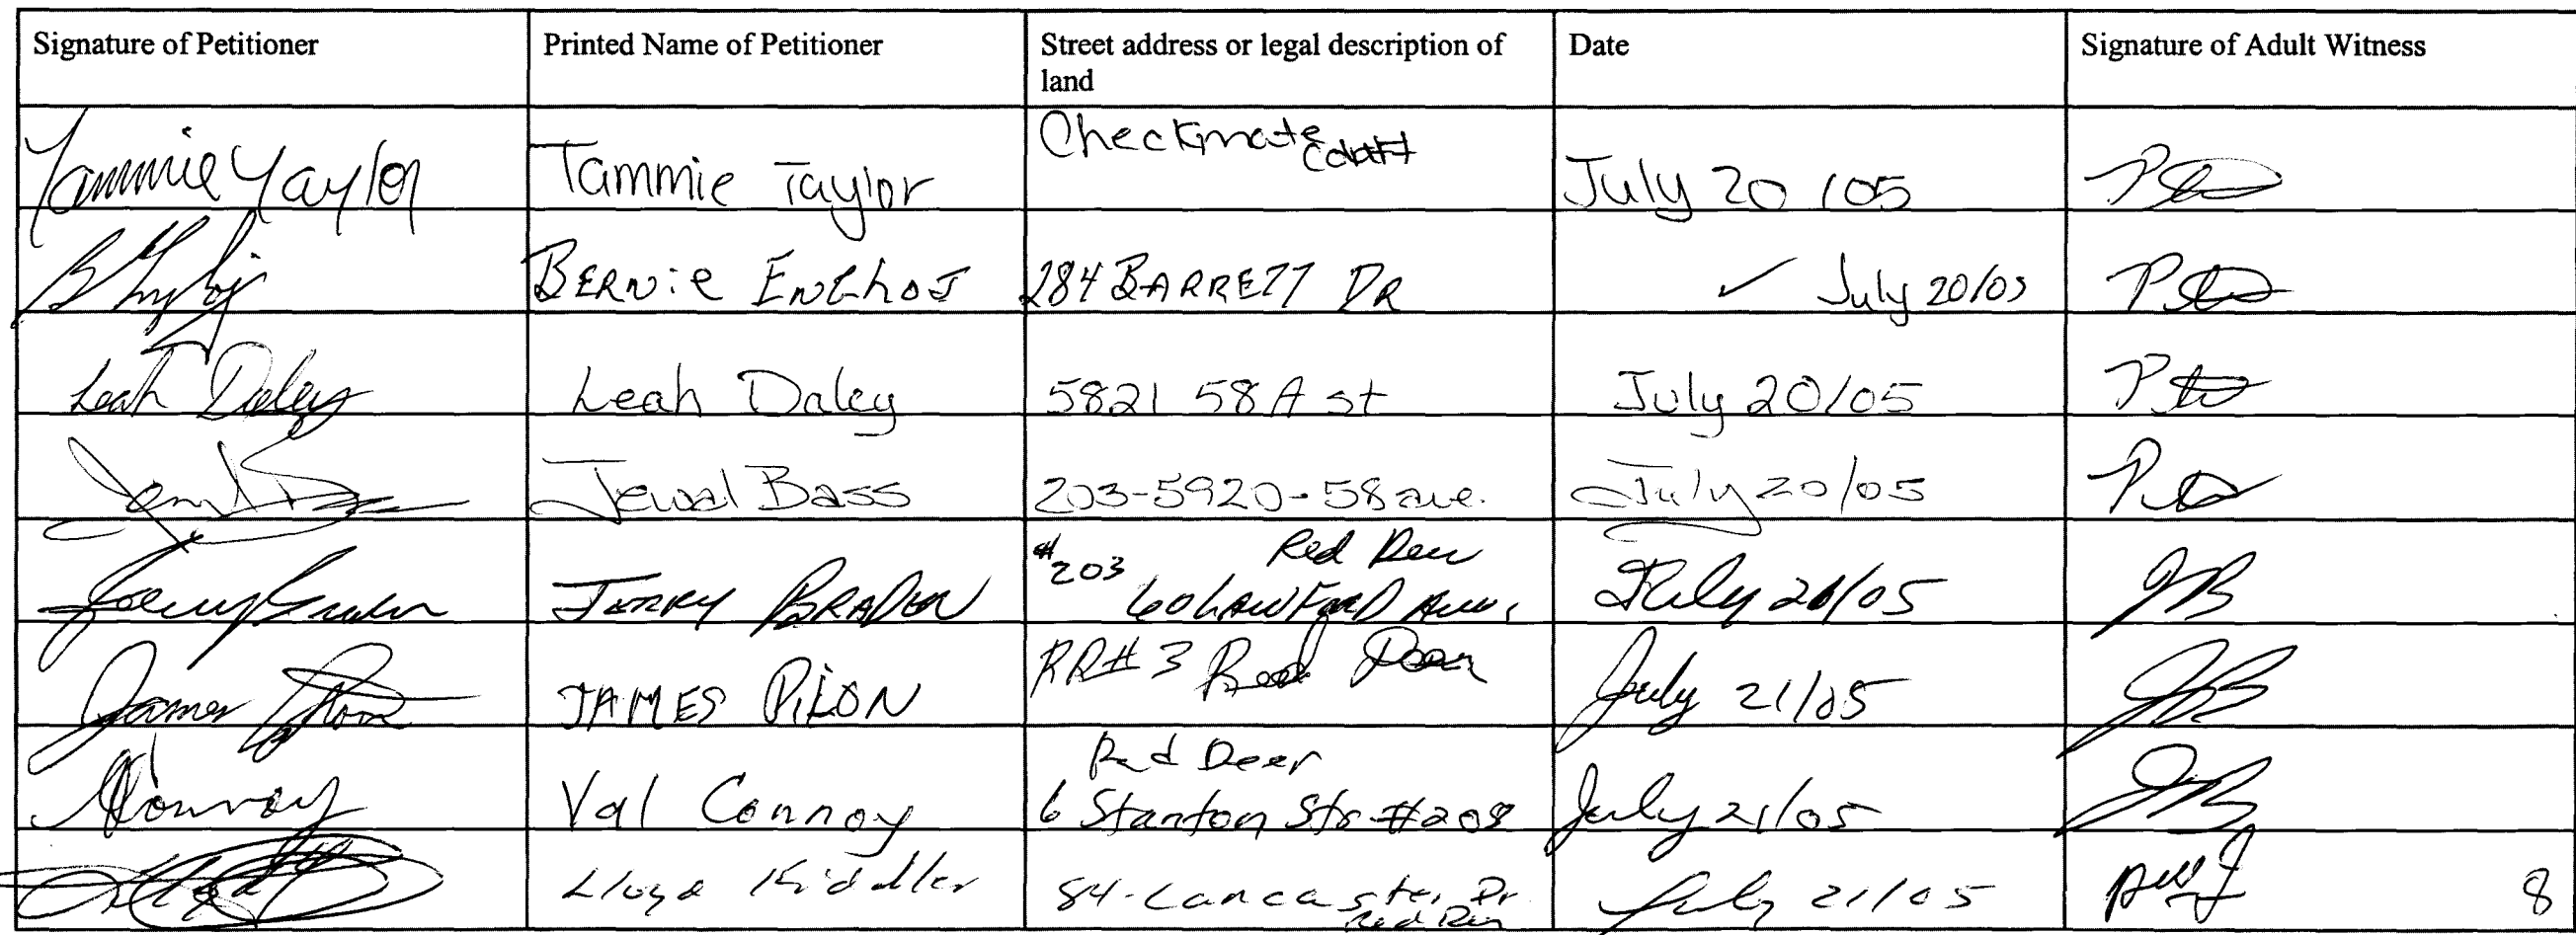 Signature of Petitioner Printed Name of Petitioner Street address or legal description of land Date Signature of Adult Witness
Tammie Taylor Tammie Taylor Checkmate July 20/05
Bernie 284 BARRETT DR ✓ July 20/05
Leah Daley Leah Daley 5821 58A st July 20/05
Jewal Bass 203-5920-58 ave. July 20/05
JERRY BRADEN #203 Red Deer 60 LAWFORD Ave. July 20/05 JB
James Pilon JAMES PILON RR#3 Red Deer July 21/05 JB
Val Connoy Red Deer 6 Stanton Str #208 July 21/05 JB
Lloyd 84-Lancaster Dr Red Deer July 21/05 8